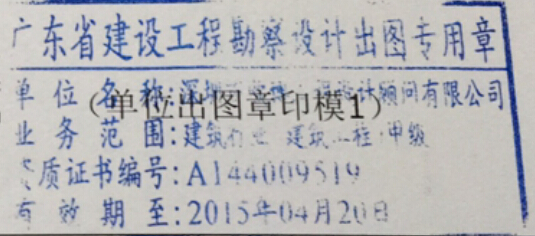 广东省建设工程勘察设计出图专用章
单位名称:深圳 设计顾问有限公司
(单位出图章印模1)
业务范围:建筑行业 建筑工程 甲级
资质证书编号:A144009519
有效期至:2015年04月20日